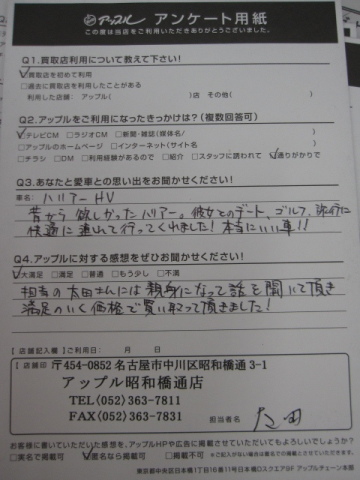 アップル アンケート用紙
この度は当店をご利用いただきありがとうございました。
Q1.買取店利用について教えて下さい!
☑買取店を初めて利用
□過去に買取店を利用したことがある
利用した店舗: アップル( )店 その他( )
Q2.アップルをご利用になったきっかけは?(複数回答可)
☑テレビCM □ラジオCM □新聞・雑誌(媒体名/ )
□アップルのホームページ □インターネット(サイト名 )
□チラシ □DM □利用経験があるので □紹介 □スタッフに誘われて ☑通りがかりで
Q3.あなたと愛車との思い出をお聞かせください!
車名: ハリアー HV
昔から欲しかったハリアー。彼女とのデート、ゴルフ、旅行に
快適に連れて行ってくれました!本当にいい車!!
Q4.アップルに対する感想をぜひお聞かせください!
☑大満足 □満足 □普通 □もう少し □不満
担当の太田さんには親身になって話を聞いて頂き
満足のいく価格で買い取って頂きました!
【店舗記入欄】ご利用日: 月 日
【店舗印】
〒454-0852 名古屋市中川区昭和橋通 3-1
アップル昭和橋通店
TEL(052)363-7811
FAX(052)363-7831
担当者名 太田
お客様に書いていただいた感想を、アップルHPや広告に掲載させていただいてもよろしいでしょうか?
□実名で掲載可 ☑匿名なら掲載可 □掲載不可 ※ご記入がない場合は匿名での掲載可とさせていただきます。
東京都中央区日本橋1丁目16番11号日本橋Dスクエア5F アップルチェーン本部